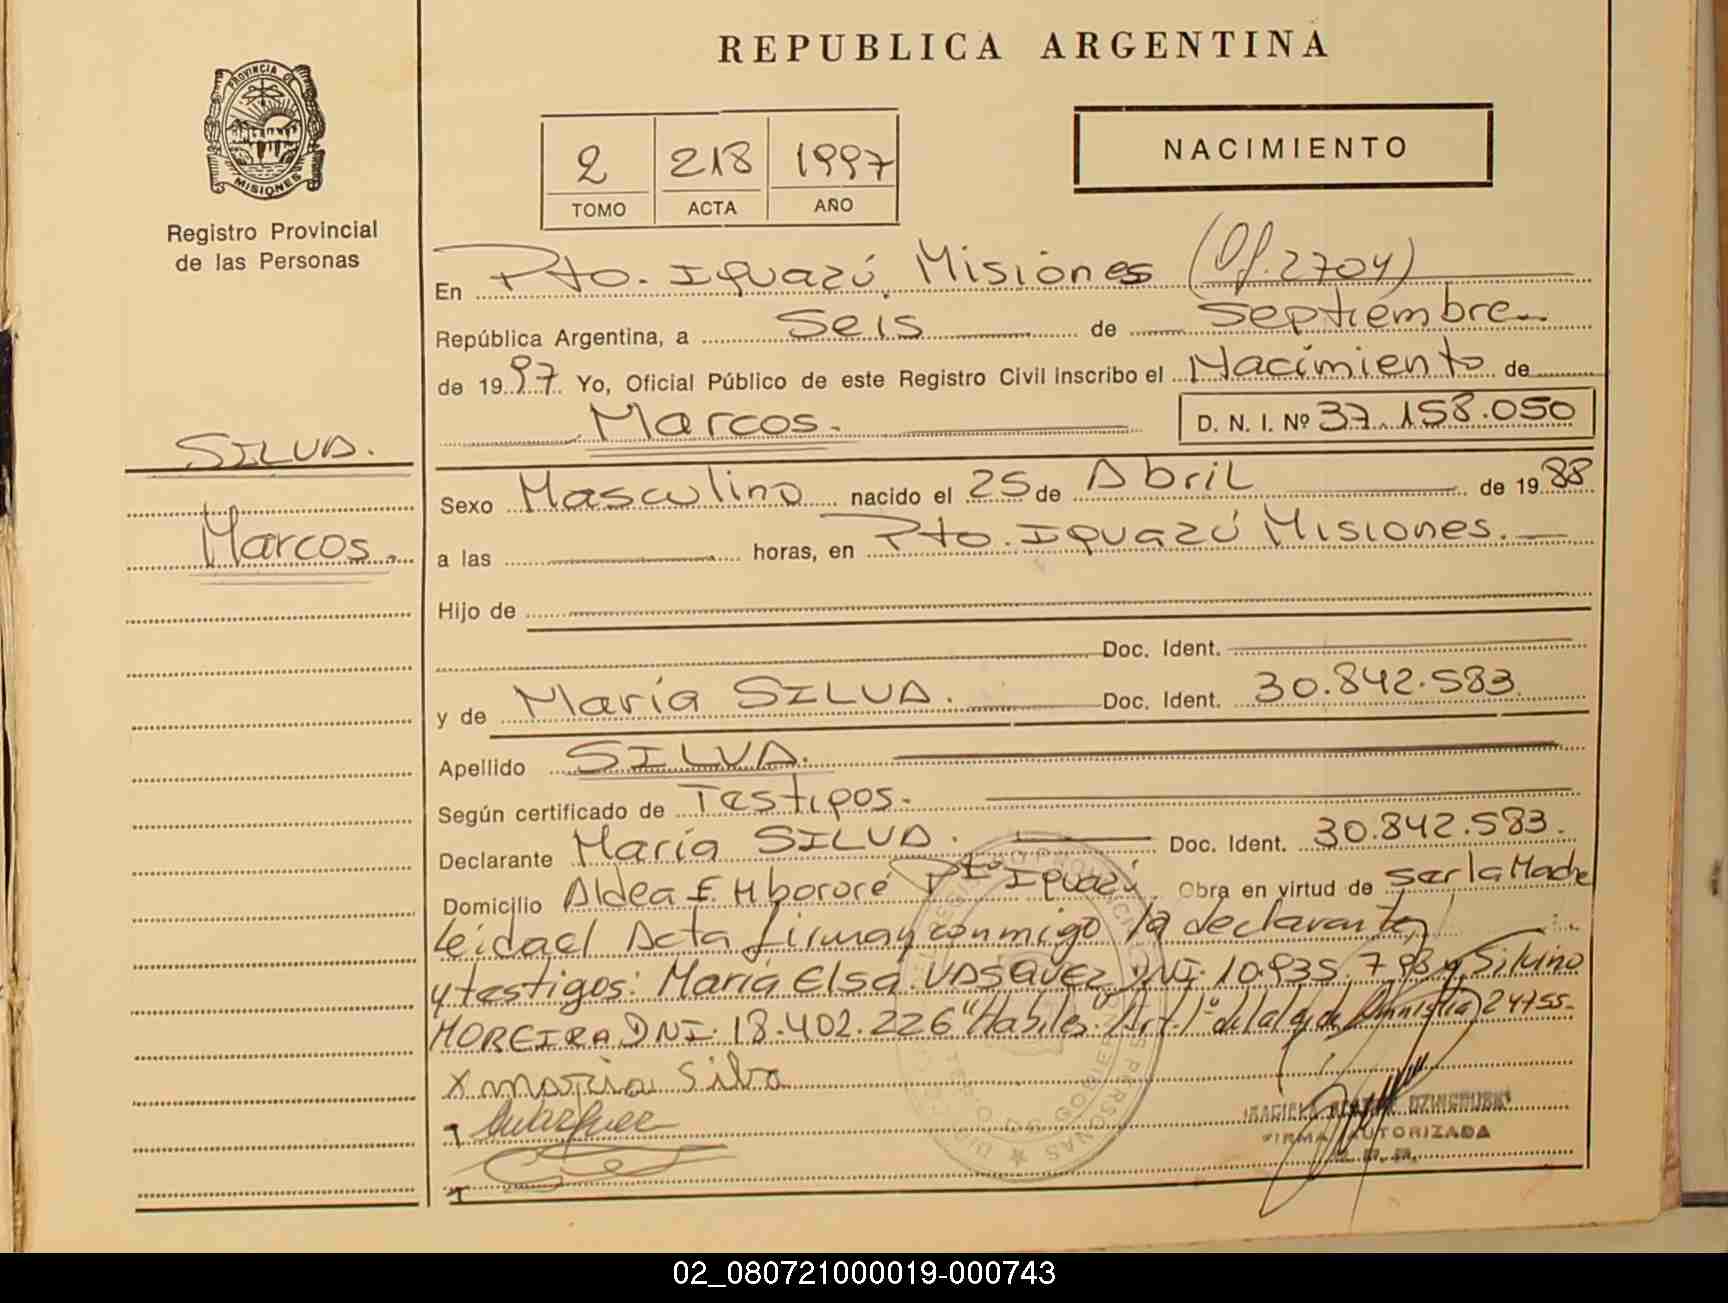 REPUBLICA ARGENTINA
PROVINCIA DE
MISIONES
Registro Provincial
de las Personas
2 218 1997
TOMO ACTA AÑO
NACIMIENTO
En Pto. Iguazú, Misiones (Of. 2704)
República Argentina, a Seis de Septiembre
de 1997. Yo, Oficial Público de este Registro Civil inscribo el Nacimiento de
Marcos. D. N. I. Nº 37.158.050
SILVA.
Marcos.
Sexo Masculino nacido el 25 de Abril de 1988
a las horas, en Pto. Iguazú Misiones.
Hijo de
Doc. Ident.
y de María SILVA. Doc. Ident. 30.842.583
Apellido SILVA.
Según certificado de Testigos.
Declarante María SILVA. Doc. Ident. 30.842.583.
Domicilio Aldea F. Mbororé Pto Iguazú Obra en virtud de ser la Madre
leida el Acta firman conmigo la declarante,
y testigos: María Elsa VASQUEZ DNI. 10.935.793 y Silvino
MOREIRA DNI. 18.402.226 "Habiles". Art. 1º de la ley de Amnistia 24755.
X maria Silva
FIRMA AUTORIZADA
02_080721000019-000743